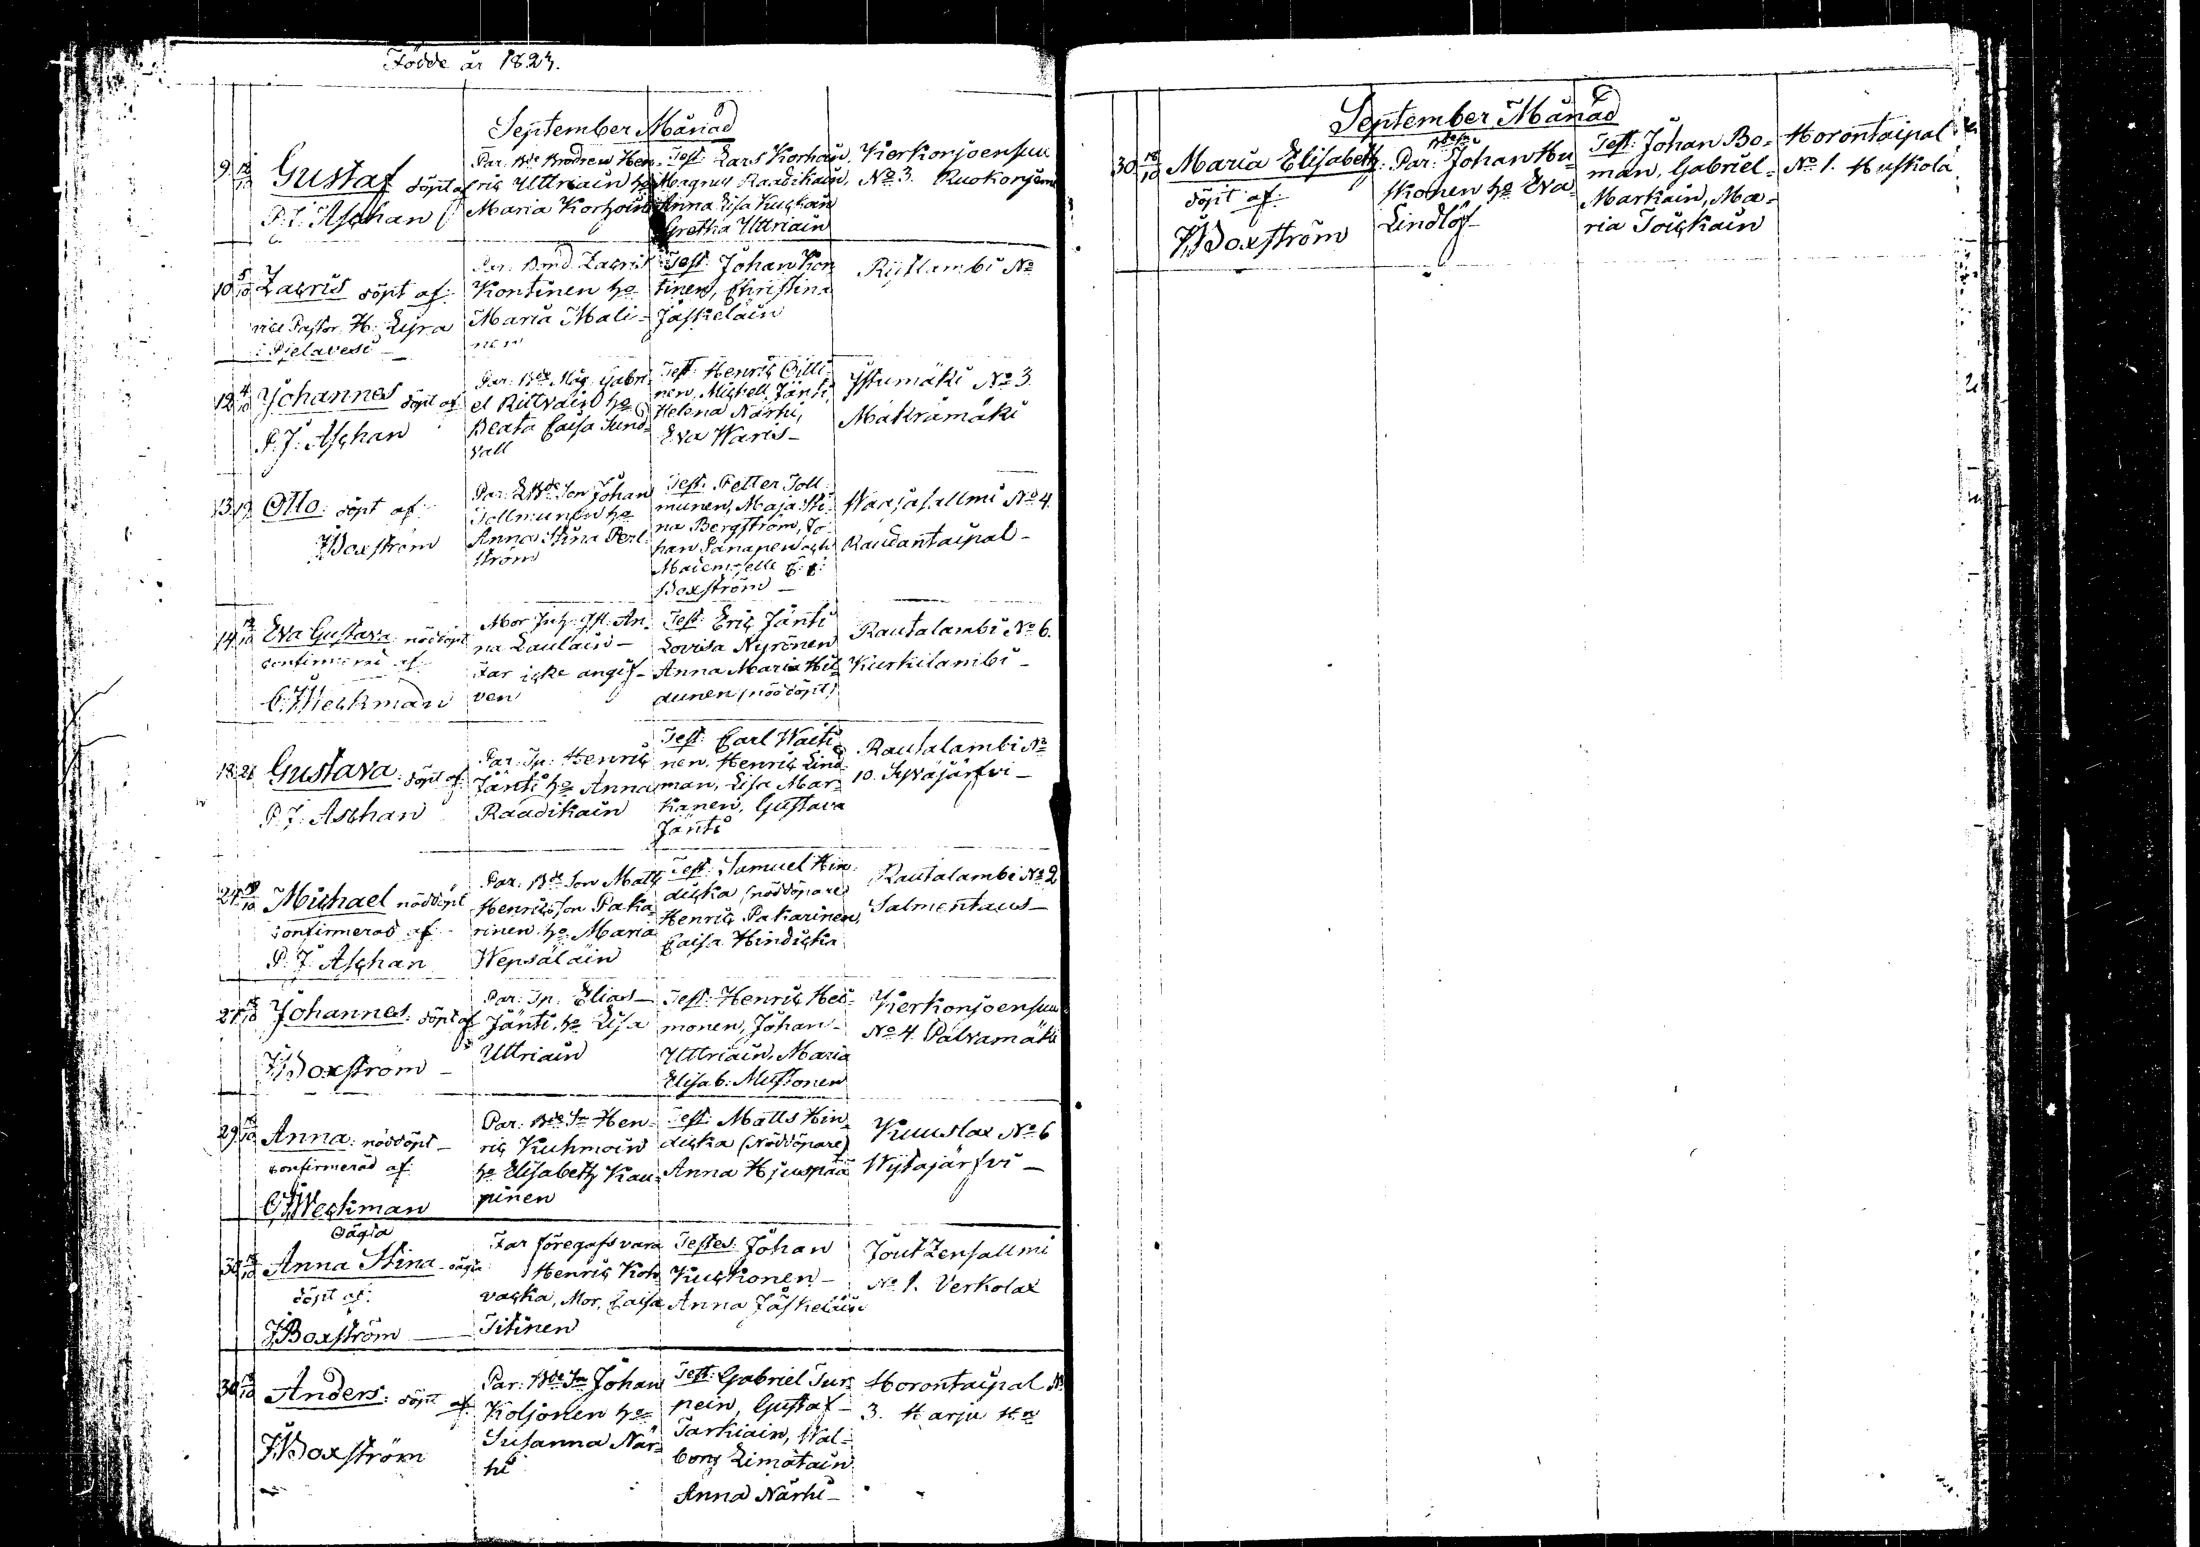 Födde år 1823.
September Månad
9 12/10 Gustaf döpt af
P. J. Aschan
Par. Bde Brodren Hen-
ric Uttriain ho
Maria Korhoin
Test: Lars Korhoin,
Magnus Raadikain,
Anna Lisa Kuckain
Gretha Uttriain
Kierkonjoensuu
No 3. Ruokonjemi
10 5/10 Zacris döpt af
vice Pastor H: Lyra
i Pielavesi
Par: Bond. Zacris
Kontinen ho
Maria Mali-
nen
Test: Johan Kon
tinen, Christina
Jäskeläin
Rijtlambi No
12 4/10 Johannes döpt af
P. J. Aschan
Par: Bde Måg Gabri-
el Rittvain ho
Beata Caisa Sund-
vall
Test: Henric Oilli-
nen, Michell Jänti,
Helena Närhi,
Eva Waris
Istumäki No 3
Mäkrämäki
13 Otto: döpt af
J Boxström
Par: Bde Son Johan
Tollmunen ho
Anna Stina Perl-
ström
Test: Petter Toll-
munen, Maja Sti-
na Bergström, Jo-
han Janapen och
Mademoiselle
Boxström
Waajasallmi No 4.
Raudantaipal
14 Eva Gustava: nöddöpt
confirmerad af
C. Weckman
Mor Inh: An-
na Laulain
Far icke angif-
ven
Test: Eric Jänti
Lovisa Kyrönen
Anna Maria Hil-
dunen (nöddöpt)
Rautalambi No 6.
Kurkilambi
18 21 Gustava: döpt af
P. J. Aschan
Par: In: Henric
Jänti ho Anna
Raadikain
Test: Carl Waiti-
nen, Henric Lind-
man, Lisa Mar-
kanen, Gustava
Jänti
Rautalambi No
10. Syväjärfvi
24 Michael nöddöpt
confirmerad af
P. J. Aschan
Par: Bde Son Matts
Henricsson Paka-
rinen ho Maria
Wepsäläin
Test: Samuel Hin
dicka (nöddöpare)
Henric Pakarinen,
Caisa Hindicka
Rautalambi No 2
Salmentaus
27 18/10 Johannes: döpt af
J Boxström
Par: In: Elias
Jänti, ho Lisa
Uttriain
Test: Henric Hei-
monen, Johan
Uttriain, Maria
Elisab: Mustonen
Kierkonjoensuu
No 4. Palvamäki
29 Anna: nöddöpt
confirmerad af
C Weckman
Par: Bde Sn Hen-
ric Kuhmoin
ho Elisabeth Kau-
pinen
Test: Matts Hin
dicka (Nöddöpare)
Anna Hjuupää
Kuuslax No 6
Wijtajärfvi
30 18/10 Anna Stina oägta
Oägta
döpt af
J Boxström
Far föregafs vara
Henric Koh
vacka, Mor, Caisa
Titinen
Testes: Johan
Kuckonen
Anna Jäskeläin
Joutzensallmi
No 1. Verkolax
30 18/10 Anders: döpt af
J Boxström
Par: Bde Sn Johan
Koljonen ho
Susanna När-
hi
Test: Gabriel Tur-
pein, Gustaf
Tarkiain, Wal-
borg Limatain
Anna Närhi
Horontaipal No
3. Harju Hn
September Månad
30 18/10 Maria Elisabeth
döpt af
J Boxström
Par: Johan Hu
skonen ho Eva
Lindlöf
Test: Johan Bo-
man, Gabriel
Markain, Ma-
ria Toickain
Horontaipal
No 1. Huskola